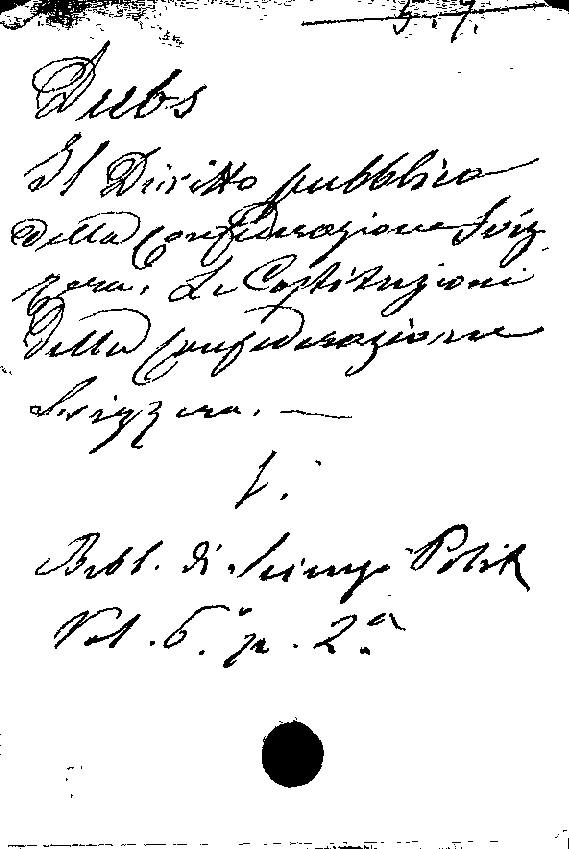 5.7.
Dubs
Il Diritto pubblico
della Confederazione Sviz
zera. Le Costituzioni
della Confederazione
Svizzera. —
V.
Bibl. di Scienze Polit
Vol. 6.° p. 2.a